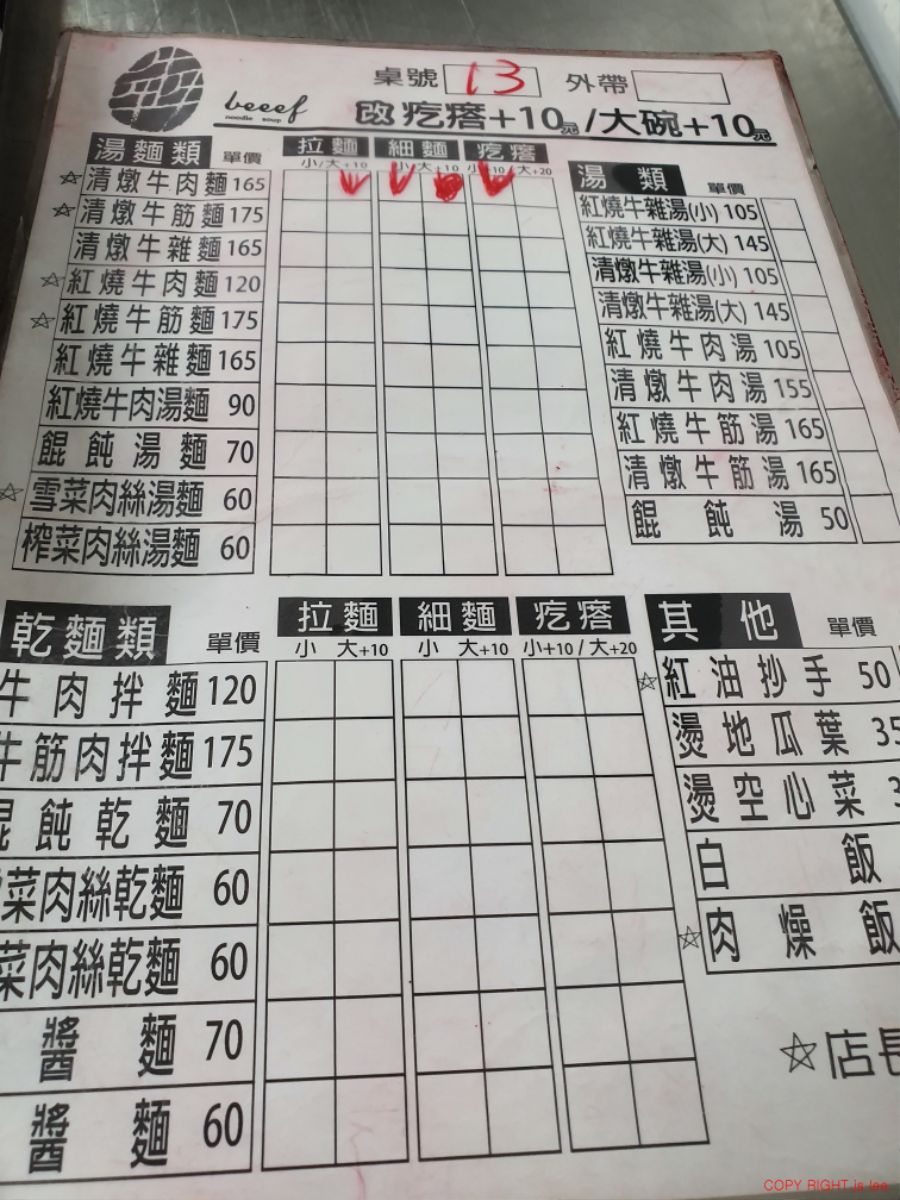 桌號 13 外帶
beeef
noodle soup
改疙瘩+10元/大碗+10元
湯麵類 單價 拉麵 細麵 疙瘩
小/大+10 小 大+10 小+10/大+20
☆清燉牛肉麵 165
☆清燉牛筋麵 175
清燉牛雜麵 165
☆紅燒牛肉麵 120
☆紅燒牛筋麵 175
紅燒牛雜麵 165
紅燒牛肉湯麵 90
餛飩湯麵 70
☆雪菜肉絲湯麵 60
榨菜肉絲湯麵 60
湯類 單價
紅燒牛雜湯(小) 105
紅燒牛雜湯(大) 145
清燉牛雜湯(小) 105
清燉牛雜湯(大) 145
紅燒牛肉湯 105
清燉牛肉湯 155
紅燒牛筋湯 165
清燉牛筋湯 165
餛飩湯 50
乾麵類 單價 拉麵 細麵 疙瘩
小 大+10 小 大+10 小+10/大+20
牛肉拌麵 120
牛筋肉拌麵 175
餛飩乾麵 70
菜肉絲乾麵 60
菜肉絲乾麵 60
醬麵 70
醬麵 60
其他 單價
☆紅油抄手 50
燙地瓜葉 35
燙空心菜 3
白飯
☆肉燥飯
☆店長
COPY RIGHT is lee